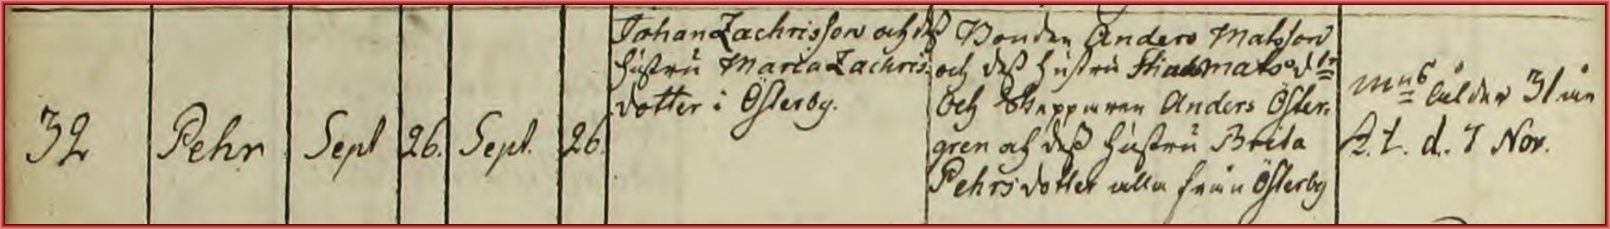 32 Pehr Sept 26. Sept. 26.
Johan Zachrisson och deß
hustru Maria Zachris
dotter i Österby.
Bonden Anders Matsson
och deß hustru Mats dr
och Skepparen Anders Öster-
gren och deß hustru Brita
Pehrsdotter alla från Österby
ålder 31 år
K. t. d. 7 Nov.